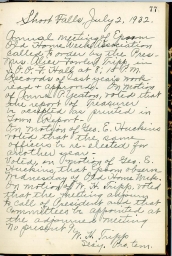 77
Short Falls, July 2, 1932.
Annual meeting of Epsom
Old Home Week Association
called to order by the Pres.
Mrs Alice Towle Tripp in
I.O.O.F. Hall at 8:15 P.M.
Records of last year's work
read & approved. On motion
of Annie voted that
the report of Treasurer
be accepted as printed in
Town Report.
On motion of Geo. E. Huckins
voted that the same
officers be re-elected for
another year.
Voted, on motion of Geo. E.
Huckins, that Epsom observe
Wednesday of Old Home Week.
On motion of W. H. Tripp, voted
that the meeting adjourn
to call of President and that
Committees be appointed at
the adjourned meeting
No present 9.
W. H. Tripp
Secy. Pro tem.